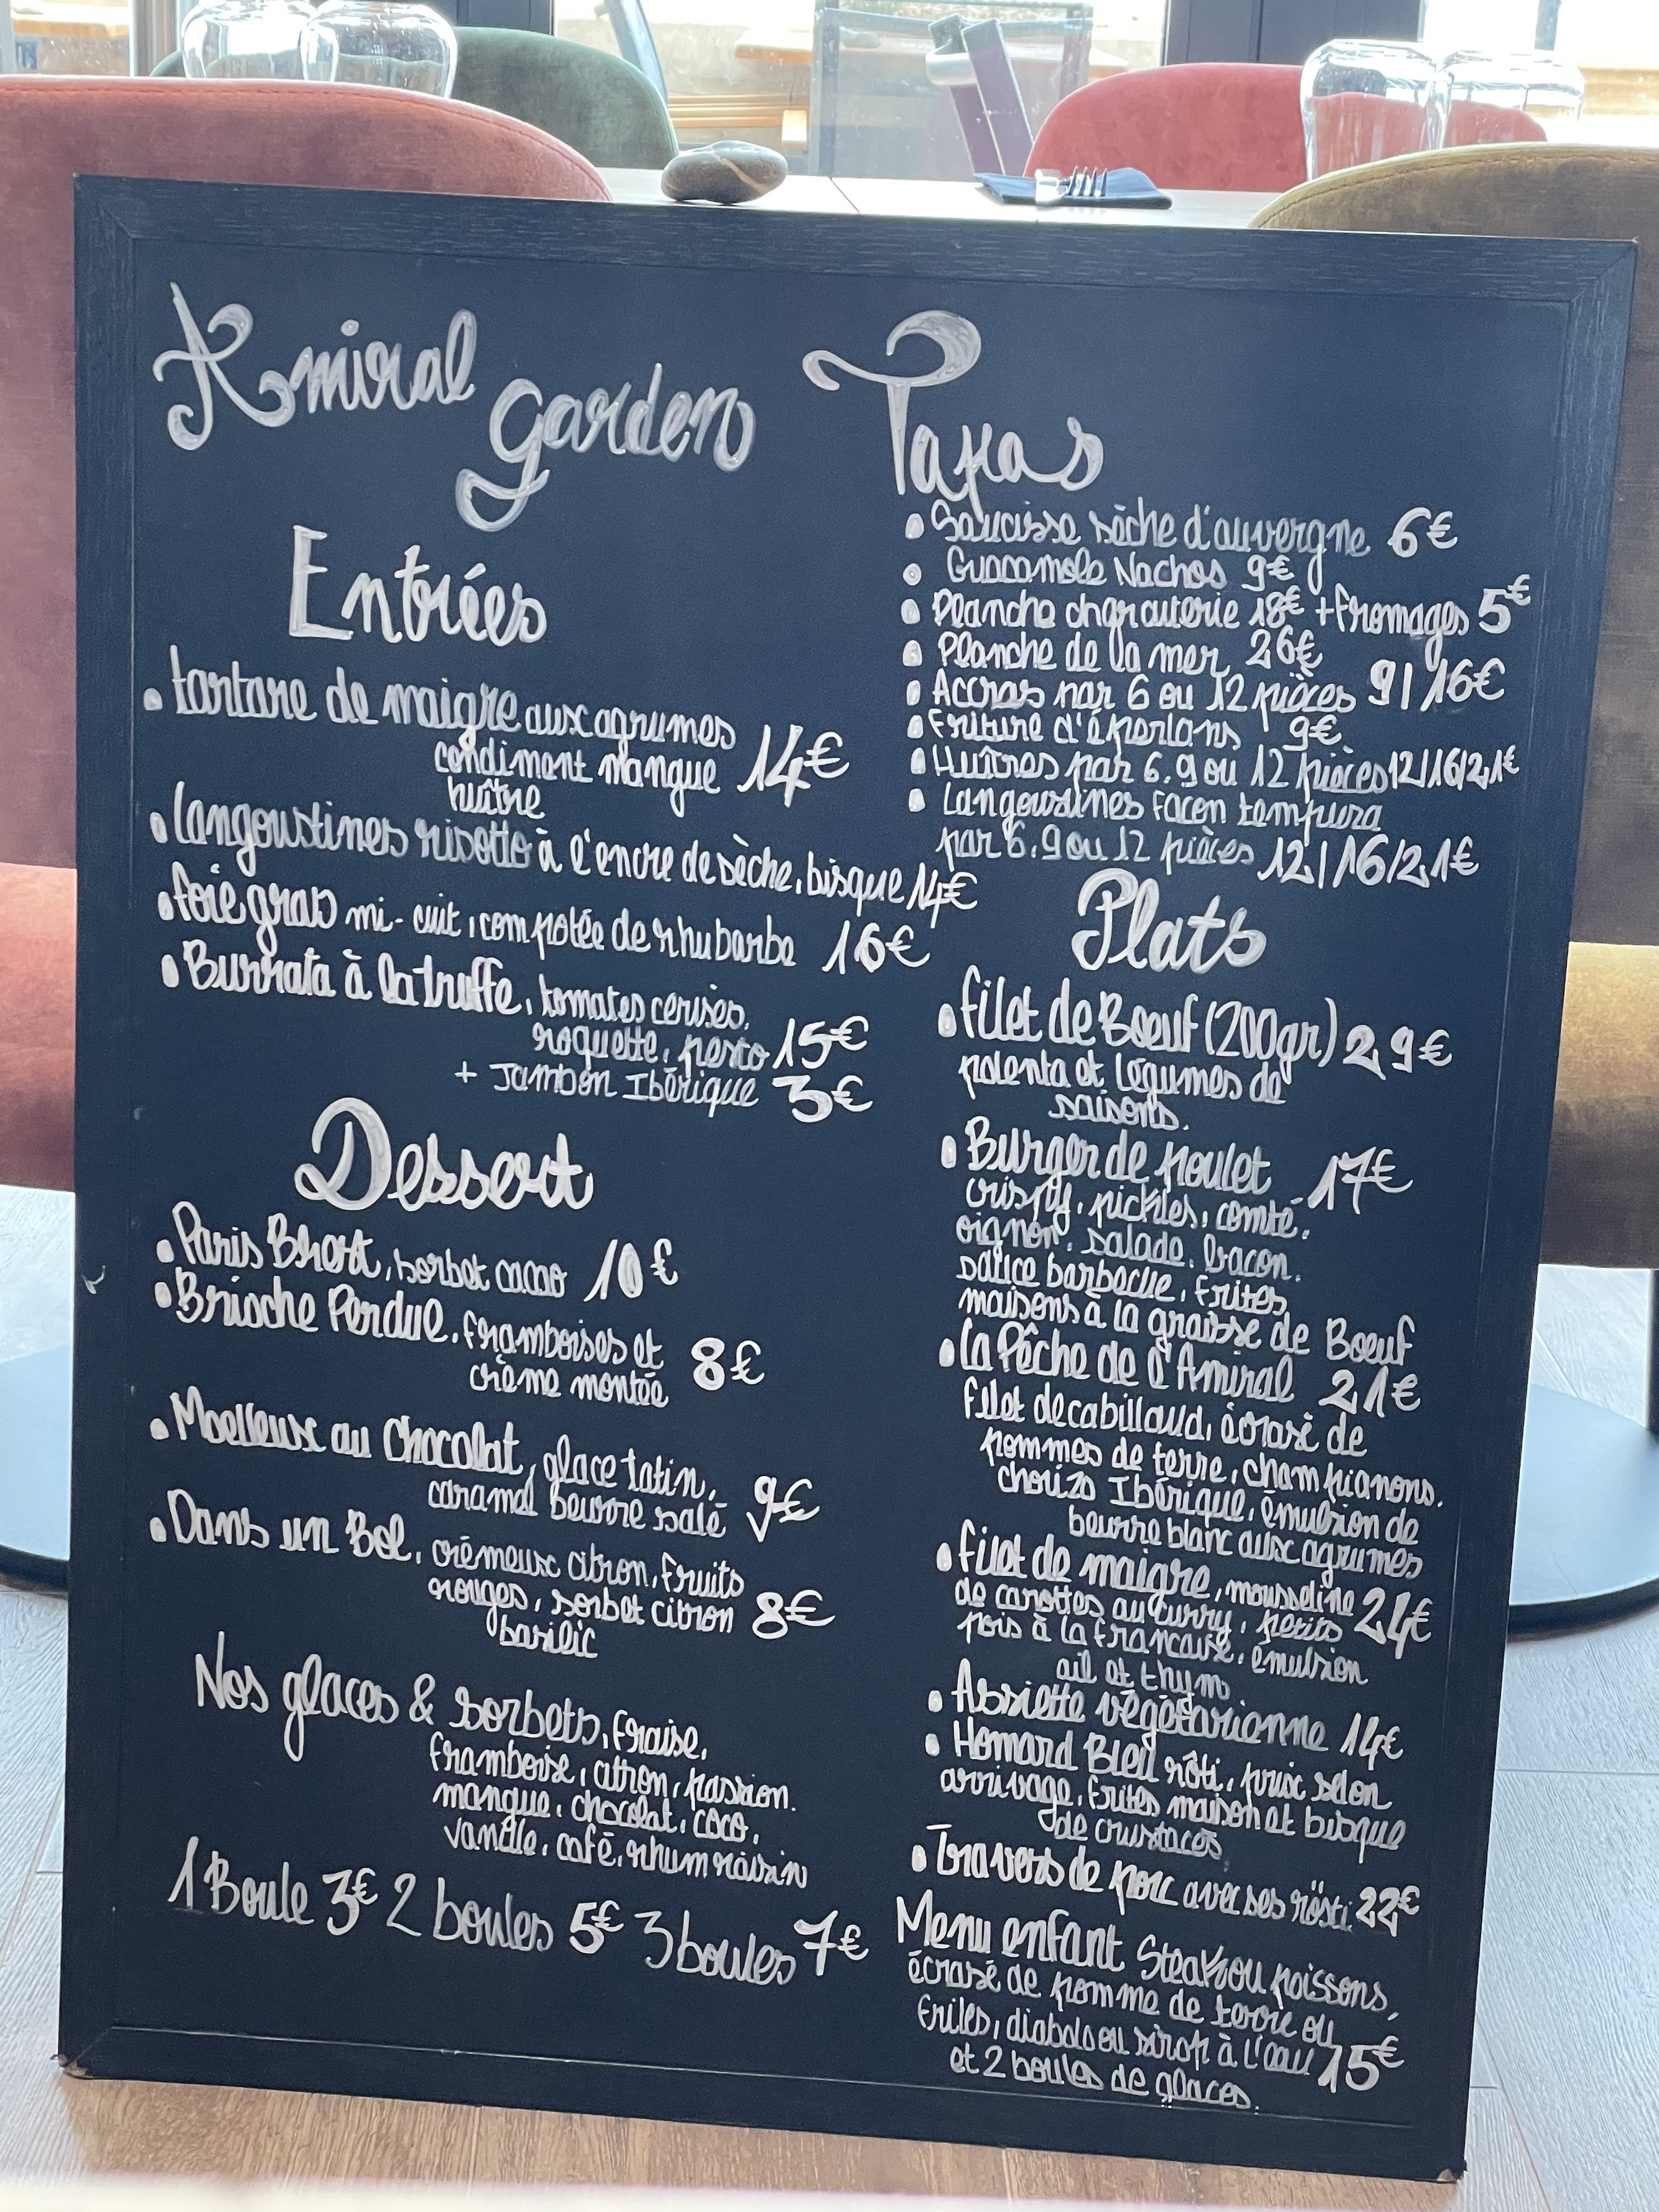 Amiral
garden
Entrées
• tartare de maigre aux agrumes
condiment mangue 14€
huître
• langoustines risotto à l'encre de sèche, bisque 14€
• foie gras mi-cuit, compotée de rhubarbe 16€
• Burrata à la truffe, tomates cerises,
roquette, pesto 15€
+ Jambon Ibérique 3€
Dessert
• Paris Brest, sorbet cacao 10€
• Brioche Perdue, framboises et
crème montée 8€
• Moelleux au Chocolat, glace tatin,
caramel beurre salé 9€
• Dans un Bol, crémeux citron, fruits
rouges, sorbet citron 8€
basilic
Nos glaces & sorbets, fraise,
framboise, citron, passion,
mangue, chocolat, coco,
vanille, café, rhum raisin
1 Boule 3€ 2 boules 5€ 3 boules 7€
Tapas
• Saucisse sèche d'auvergne 6€
• Guacamole Nachos 9€
• Planche charcuterie 18€ + fromages 5€
• Planche de la mer 26€
• Accras par 6 ou 12 pièces 9 | 16€
• Friture d'éperlans 9€
• Huîtres par 6, 9 ou 12 pièces 12/16/21€
• Langoustines facon tempura
par 6, 9 ou 12 pièces 12/16/21€
Plats
• filet de Boeuf (200gr) 29€
polenta et légumes de
saisons.
• Burger de poulet 17€
crispy, pickles, comté,
oignon, salade, bacon,
sauce barbecue, frites
maisons à la graisse de Boeuf
• La Pêche de l'Amiral 21€
filet de cabillaud, écrasé de
pommes de terre, champignons,
chorizo Ibérique, émulsion de
beurre blanc aux agrumes
• filet de maigre, mousseline 24€
de carottes au curry, petits
pois à la francaise, émulsion
ail et thym
• Assiette végétarienne 14€
• Homard Bleu rôti, prix selon
arrivage, frites maison et bisque
de crustacés
• Travers de porc avec ses rösti 22€
Menu enfant Steak ou poissons,
écrasé de pomme de terre ou
frites, diabolo ou sirop à l'eau 15€
et 2 boules de glaces.